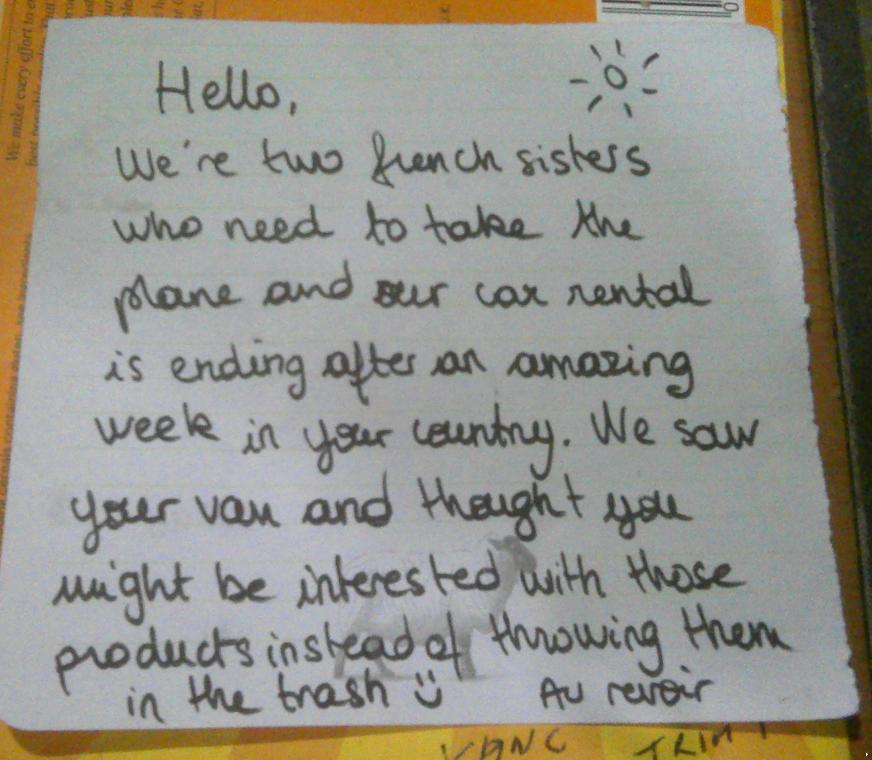 We make every effort to e
Hello,
We're two french sisters
who need to take the
plane and our car rental
is ending after an amazing
week in your country. We saw
your van and thought you
might be interested with those
products instead of throwing them
in the trash :) Au revoir